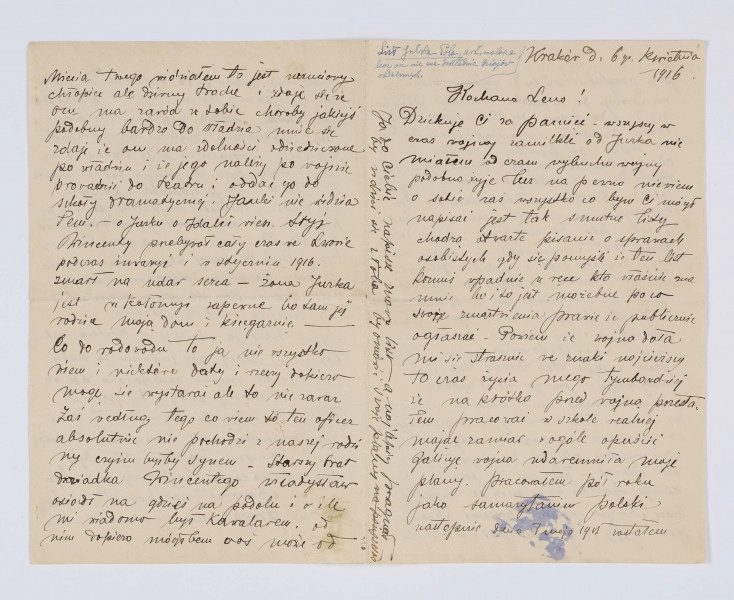 Kraków d. 6go kwietnia
1916.
Kochana Leno!
Dziękuję Ci za pamięć - wszyscy w
czas wojny zamilkli od Jurka nie
miałem od czasu wybuchu wojny
podobno żyje lecz na pewno nie wiem
o sobie zaś wszystko co bym Ci mógł
napisać jest tak smutne listy
chodzą otwarte pisanie o sprawach
osobistych gdy się pomyśli że ten list
komuś wpadnie w ręce kto właśnie zna
mnie bo i to jest możebne po co
swoje zmartwienia prawie że publicznie
ogłaszać - Powiem że wojna dała
mi się strasznie we znaki najcięższy
to czas życia mego tymbardziej
że na krótko przed wojną przesta-
łem pracować w szkole realnej
mając zamiar wogóle opuścić
Galicyę wojna udaremniła moje
plany. Pracowałem pół roku
jako samarytanin polski
następnie 1 maja 1915 zostałem
Miecia twego widziałem to jest
chłopiec ale dziwny trochę i zdaje się że
on ma zaród w sobie choroby jakiejś
podobny bardzo do Władzia mnie się
zdaje że on ma zdolności odziedziczone
po Władziu i że jego należy po wojnie
prowadzić do teatru i oddać go do
szkoły dramatycznej. Janki nie widzia
łem. - o Jurku o Idalci wiem. Stryj
Wincenty przebywał cały czas we Lwowie
podczas inwazyi i w styczniu 1916.
zmarł na udar serca - żona Jurka
jest w Kołomyi zapewne bo tam jej
rodzice mają dom i księgarnię -
Co do rodowodu to ja nie wszystko
wiem i niektóre daty i rzeczy dopiero
mogę się wystarać ale to nie zaraz
Zaś według tego co wiem to ten oficer
absolutnie nie pochodzi z naszej rodzi
ny czyim byłby synem - Starszy brat
dziadka Wincentego Władysław
osiadł na gdzieś na podolu i o ile
mi wiadomo był Kawalerem. od
nim dopiero mógłbym coś może od
Ja do Ciebie napiszę znowu list a najchętniej pragnął
by widzieć się z Tobą by omówić Twoje plany na